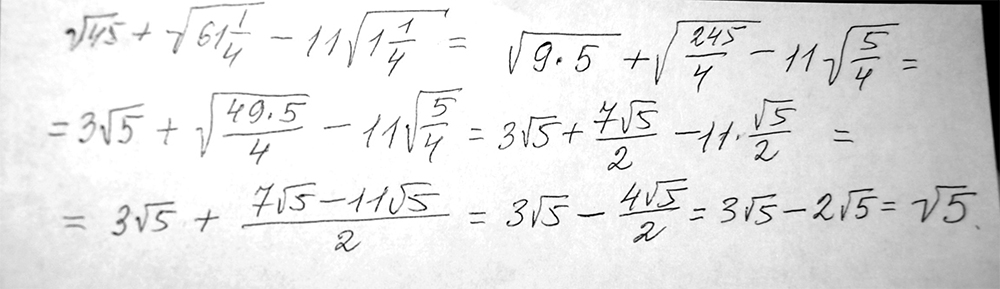 √45 + √(61 1/4) − 11√(1 1/4) = √(9·5) + √(245/4) − 11√(5/4) =
= 3√5 + √(49·5/4) − 11√(5/4) = 3√5 + 7√5/2 − 11·√5/2 =
= 3√5 + (7√5 − 11√5)/2 = 3√5 − 4√5/2 = 3√5 − 2√5 = √5.